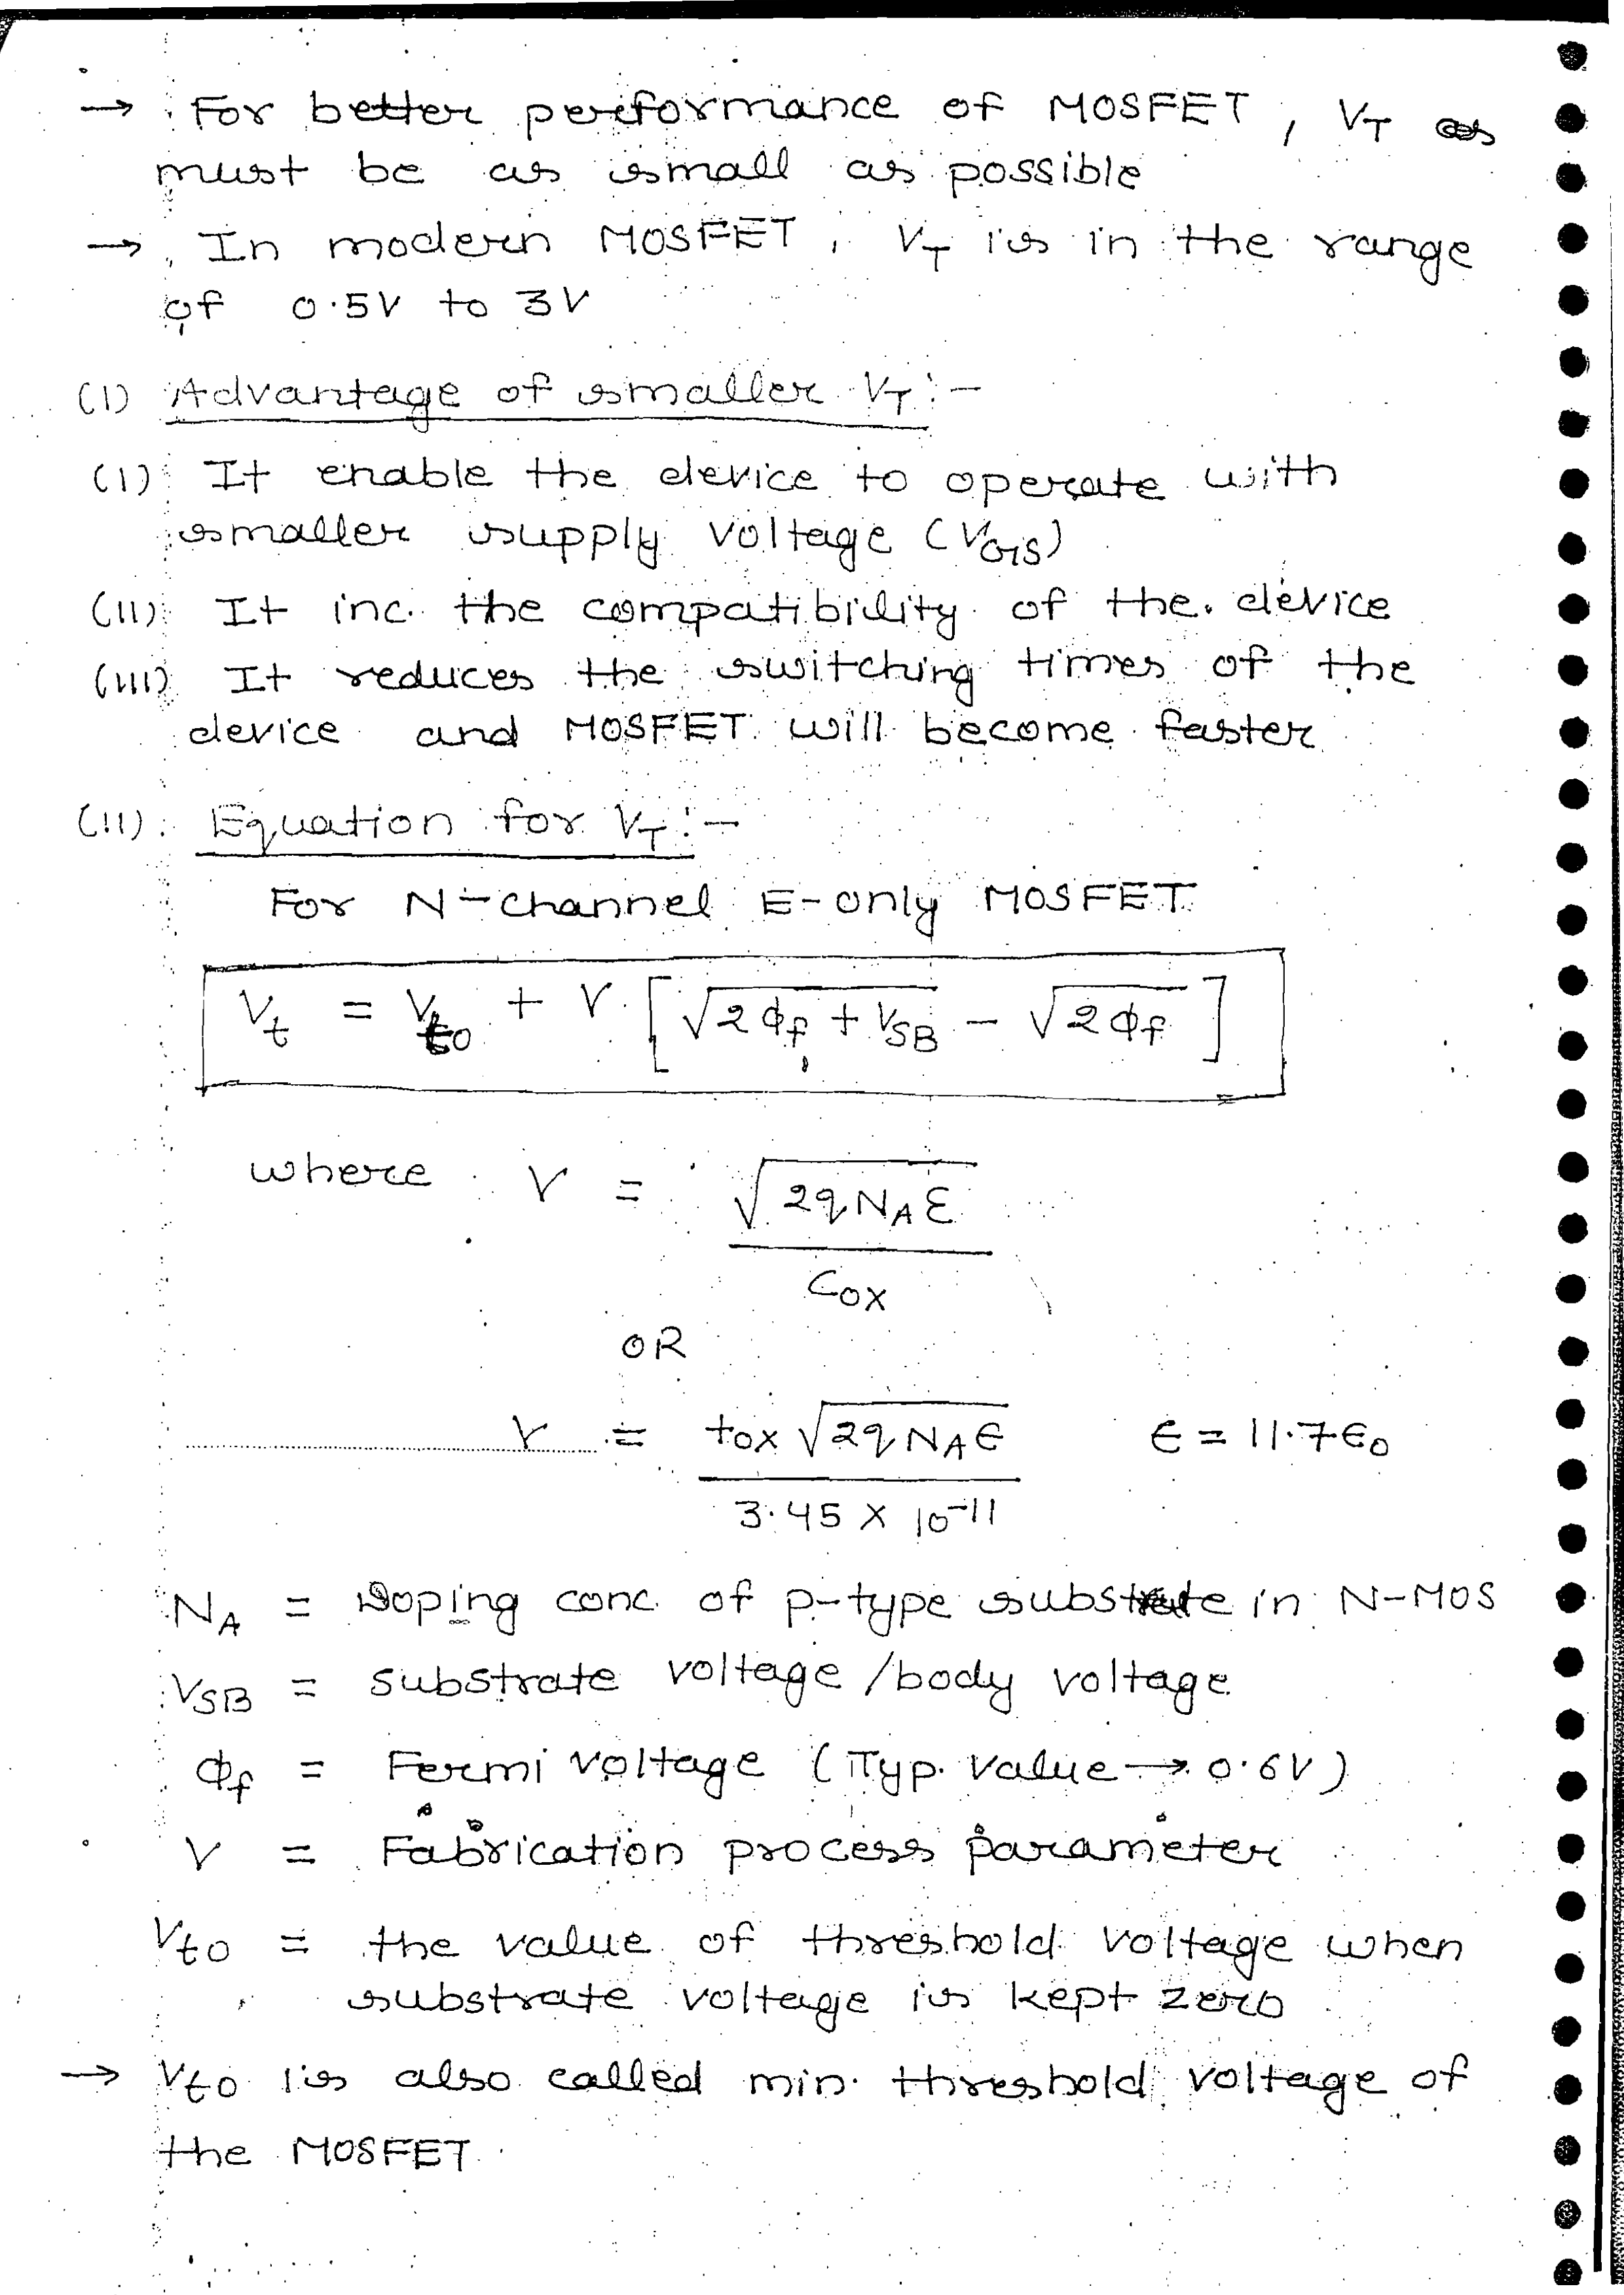 → For better performance of MOSFET, V_T
must be as small as possible
→ In modern MOSFET, V_T is in the range
of 0.5V to 3V
(I) Advantage of smaller V_T :-
(I) It enable the device to operate with
smaller supply voltage (V_GS)
(II) It inc. the compatibility of the device
(III) It reduces the switching times of the
device and MOSFET will become faster
(II). Equation for V_T :-
For N-channel E-only MOSFET
V_t = V_t0 + γ [√(2Φ_f + V_SB) - √(2Φ_f)]
where γ = √(2qN_Aε) / C_ox
OR
γ = t_ox √(2qN_Aε) / 3.45 × 10^-11 ε = 11.7ε_0
N_A = Doping conc. of p-type substrate in N-MOS
V_SB = substrate voltage / body voltage
Φ_f = Fermi voltage (Typ. value → 0.6V)
γ = Fabrication process parameter
V_t0 = the value of threshold voltage when
substrate voltage is kept zero
→ V_t0 is also called min. threshold voltage of
the MOSFET.